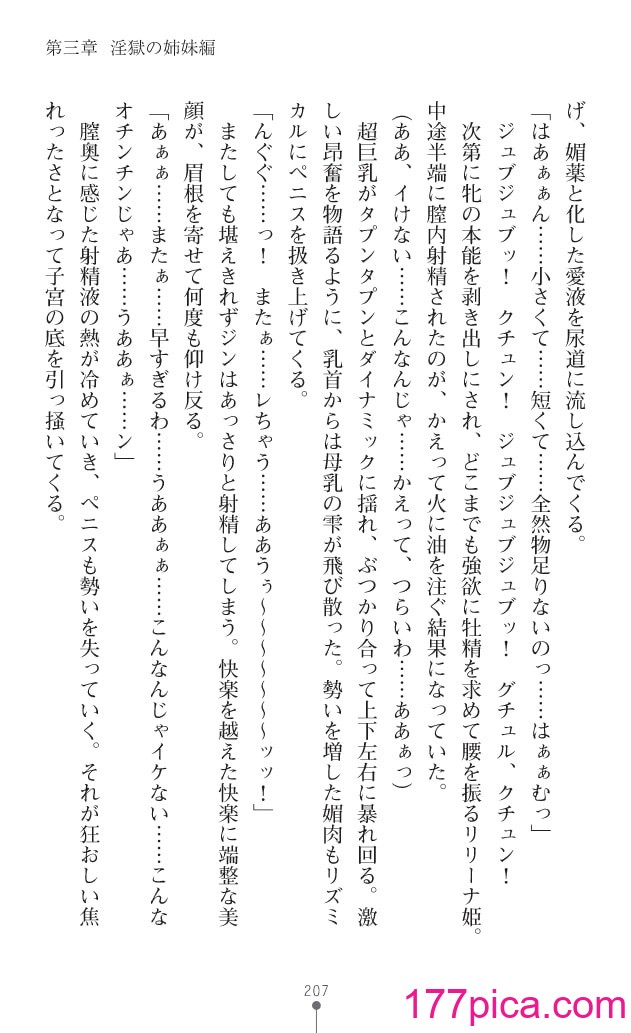 第三章 淫獄の姉妹編
げ、媚薬と化した愛液を尿道に流し込んでくる。
「はあぁぁん……小さくて……短くて……全然物足りないのっ……はぁぁむっ」
ジュブジュブッ！ クチュン！ ジュブジュブジュブッ！ グチュル、クチュン！
次第に牝の本能を剥き出しにされ、どこまでも強欲に牡精を求めて腰を振るリリーナ姫。
中途半端に膣内射精されたのが、かえって火に油を注ぐ結果になっていた。
（ああ、イけない……こんなんじゃ……かえって、つらいわ……ああぁっ）
超巨乳がタプンタプンとダイナミックに揺れ、ぶつかり合って上下左右に暴れ回る。激
しい昂奮を物語るように、乳首からは母乳の雫が飛び散った。勢いを増した媚肉もリズミ
カルにペニスを扱き上げてくる。
「んぐぐ……っ！ またぁ……レちゃう……ああうぅ～～～～～～～ッッ！」
またしても堪えきれずジンはあっさりと射精してしまう。快楽を越えた快楽に端整な美
顔が、眉根を寄せて何度も仰け反る。
「あぁぁ……またぁ……早すぎるわ……うああぁぁ……こんなんじゃイケない……こんな
オチンチンじゃあ……うああぁ……ン」
膣奥に感じた射精液の熱が冷めていき、ペニスも勢いを失っていく。それが狂おしい焦
れったさとなって子宮の底を引っ掻いてくる。
207
177pica.com